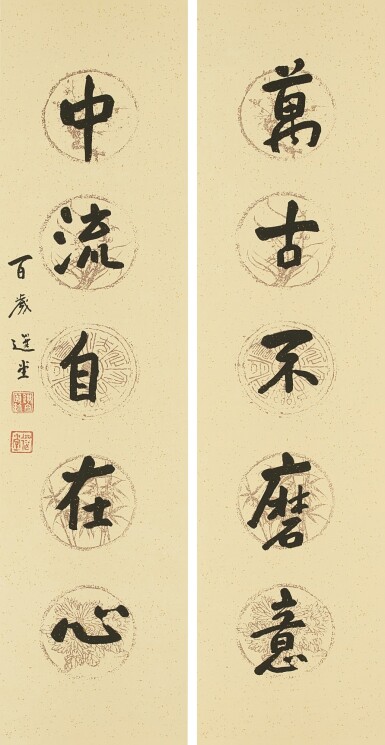 萬古不磨意
中流自在心
百歲選堂